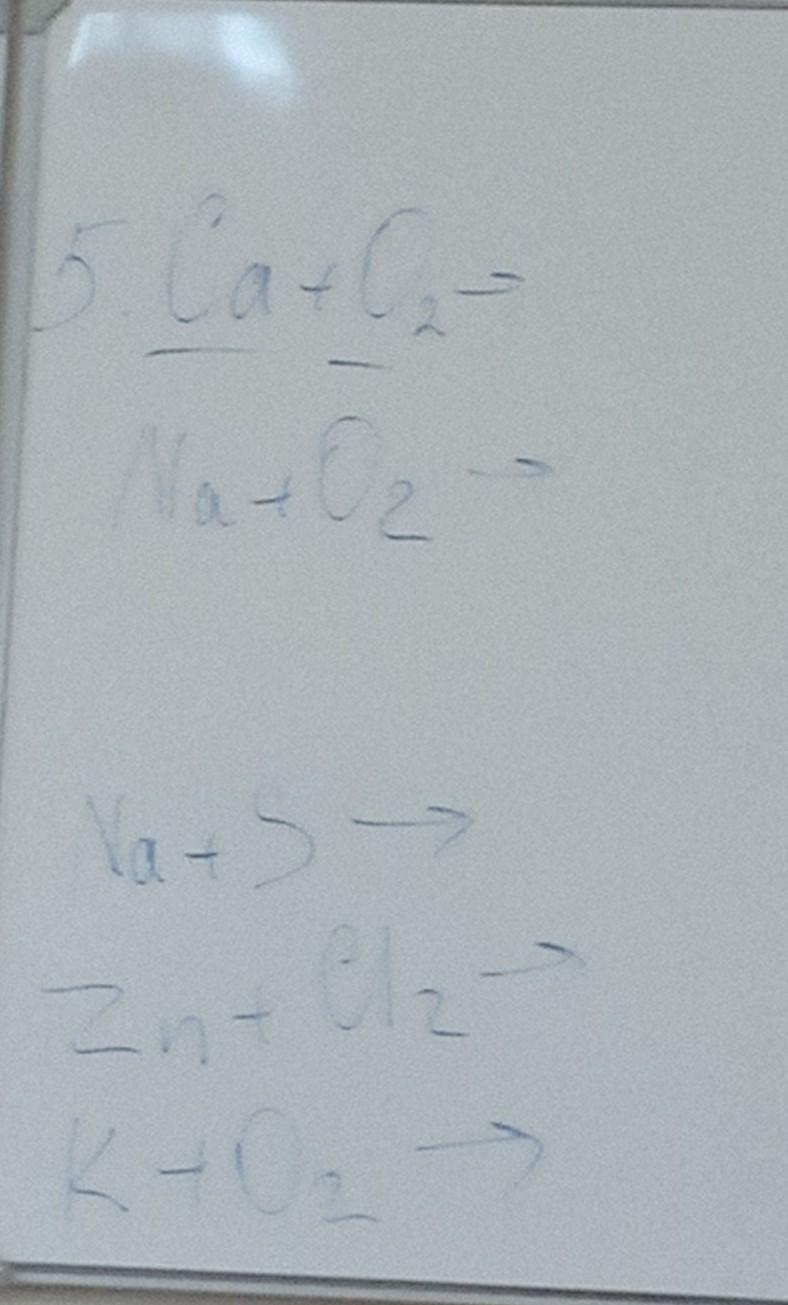 5. Ca + O₂ →
Na + O₂ →
Na + S →
Zn + Cl₂ →
K + O₂ →